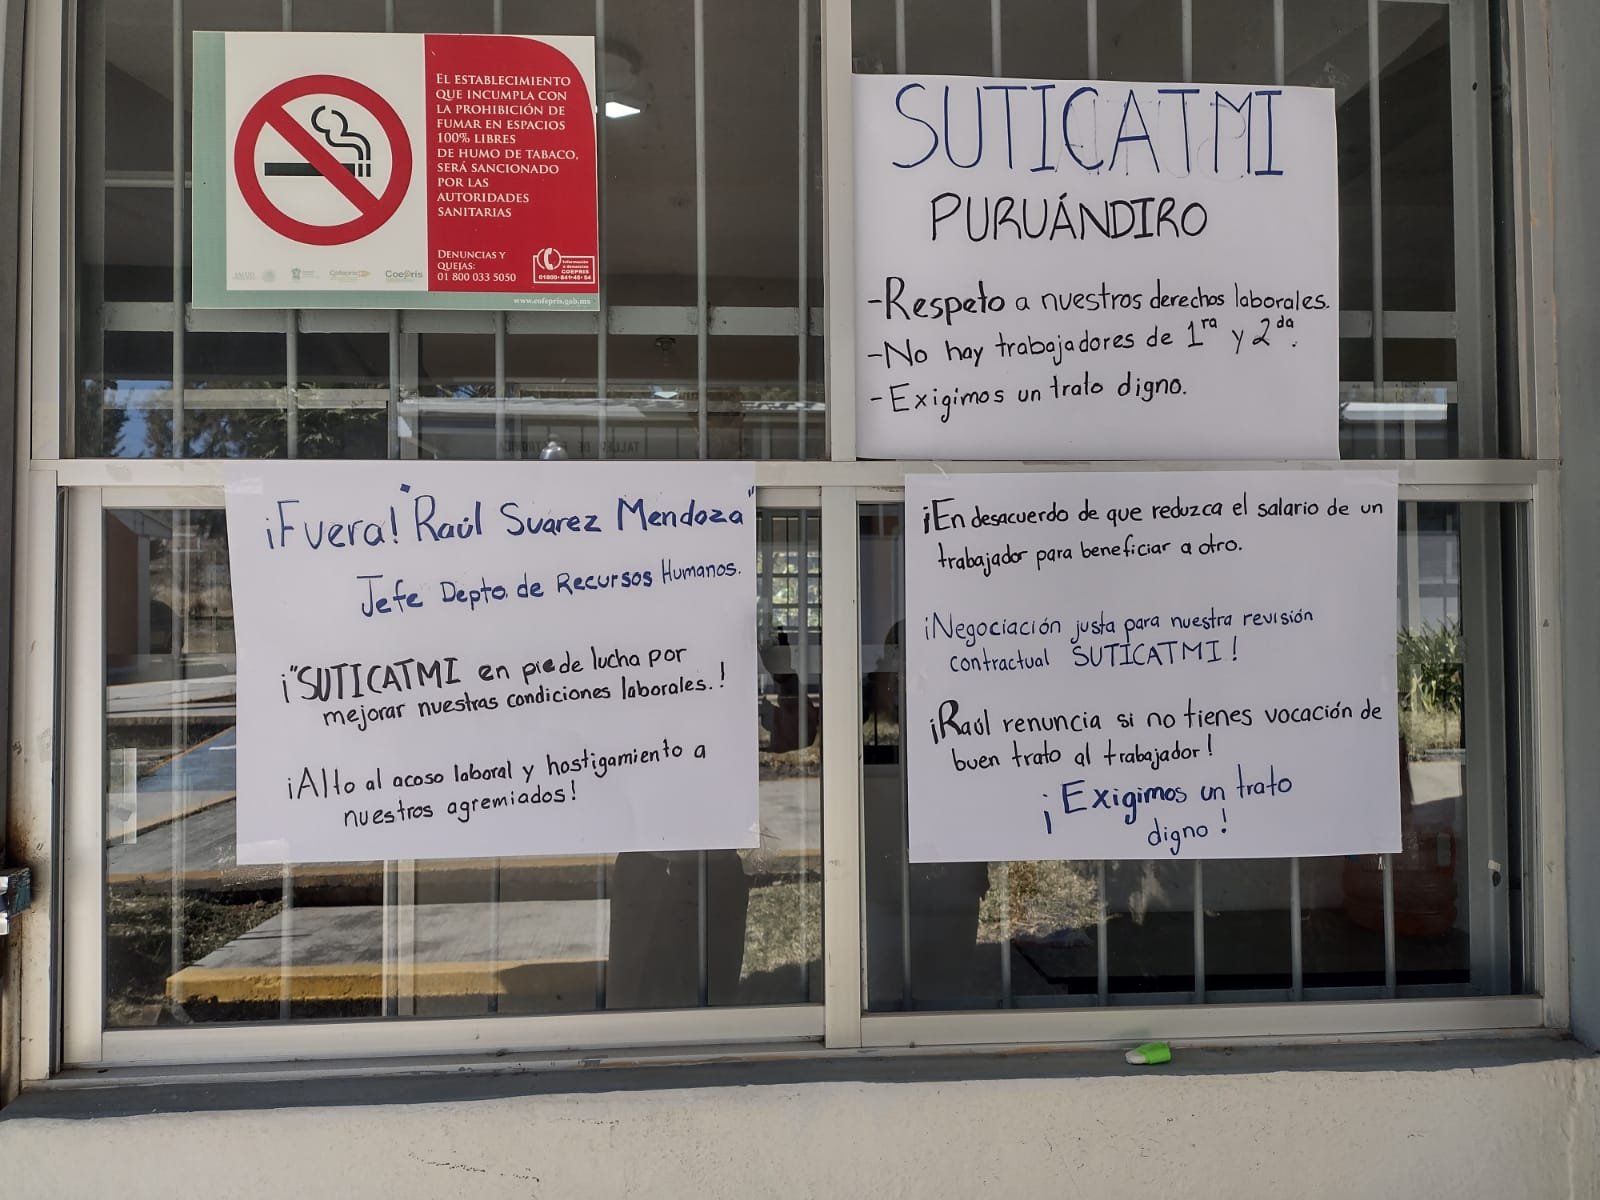 EL ESTABLECIMIENTO
QUE INCUMPLA CON
LA PROHIBICIÓN DE
FUMAR EN ESPACIOS
100% LIBRES
DE HUMO DE TABACO,
SERÁ SANCIONADO
POR LAS
AUTORIDADES
SANITARIAS
DENUNCIAS Y
QUEJAS:
01 800 033 5050
COEPRIS
SALUD
Cofepris
Coepris
www.cofepris.gob.mx
SUTICATMI
PURUÁNDIRO
-Respeto a nuestros derechos laborales.
-No hay trabajadores de 1ra y 2da.
-Exigimos un trato digno.
¡Fuera! "Raúl Suarez Mendoza"
Jefe Depto. de Recursos Humanos.
¡"SUTICATMI en pie de lucha por
mejorar nuestras condiciones laborales.!
¡Alto al acoso laboral y hostigamiento a
nuestros agremiados!
¡En desacuerdo de que reduzca el salario de un
trabajador para beneficiar a otro.
¡Negociación justa para nuestra revisión
contractual SUTICATMI!
¡Raúl renuncia si no tienes vocación de
buen trato al trabajador!
¡Exigimos un trato
digno!